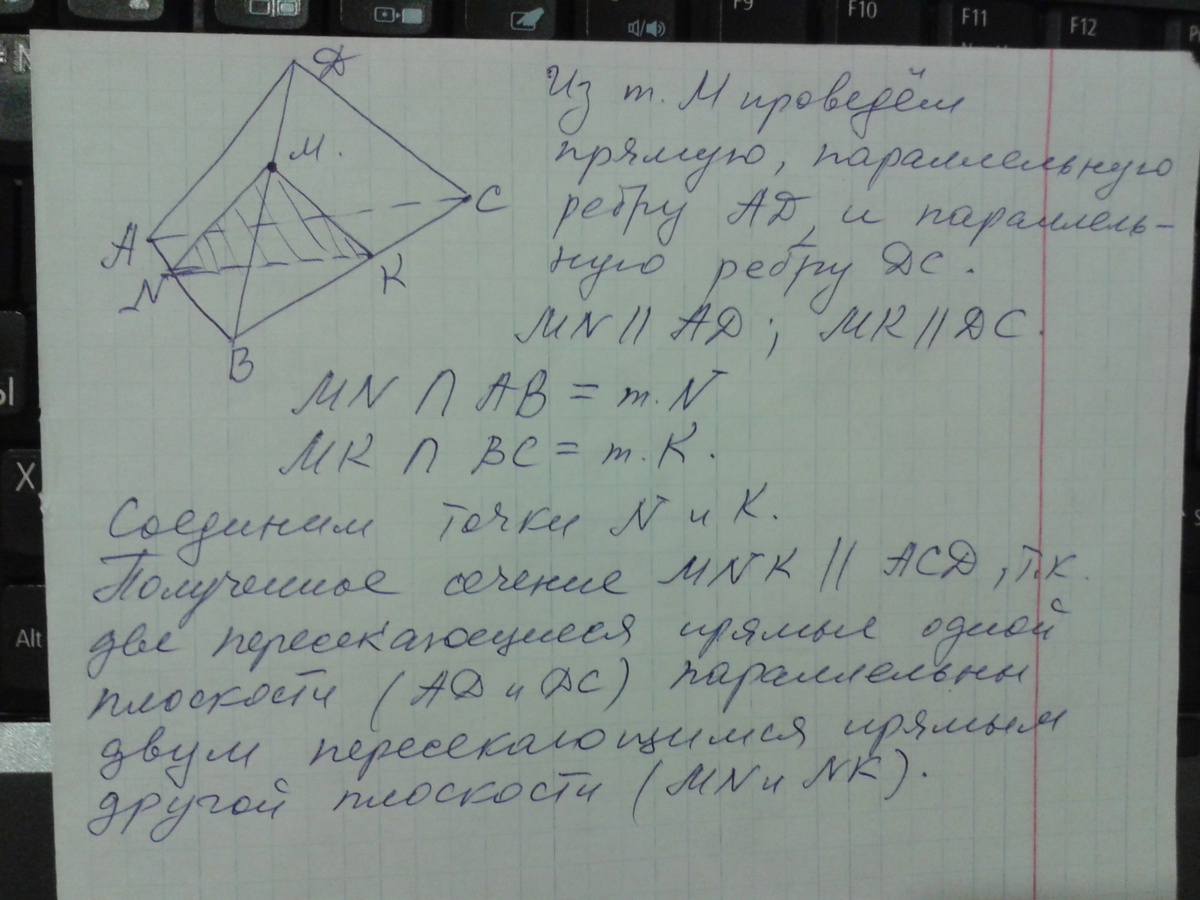 F9
F10
F11
F12
Alt
X
Ы
Д
М.
А
N
С
К
В
Из т. М проведём
прямую, параллельную
ребру АД, и параллель-
ную ребру ДС.
MN || АД; МК || ДС.
MN ∩ АВ = т. N
МК ∩ ВС = т. К.
Соединим точки N и К.
Полученное сечение MNK || АСД, т.к.
две пересекающиеся прямые одной
плоскости (АД и ДС) параллельны
двум пересекающимся прямым
другой плоскости (MN и NK).